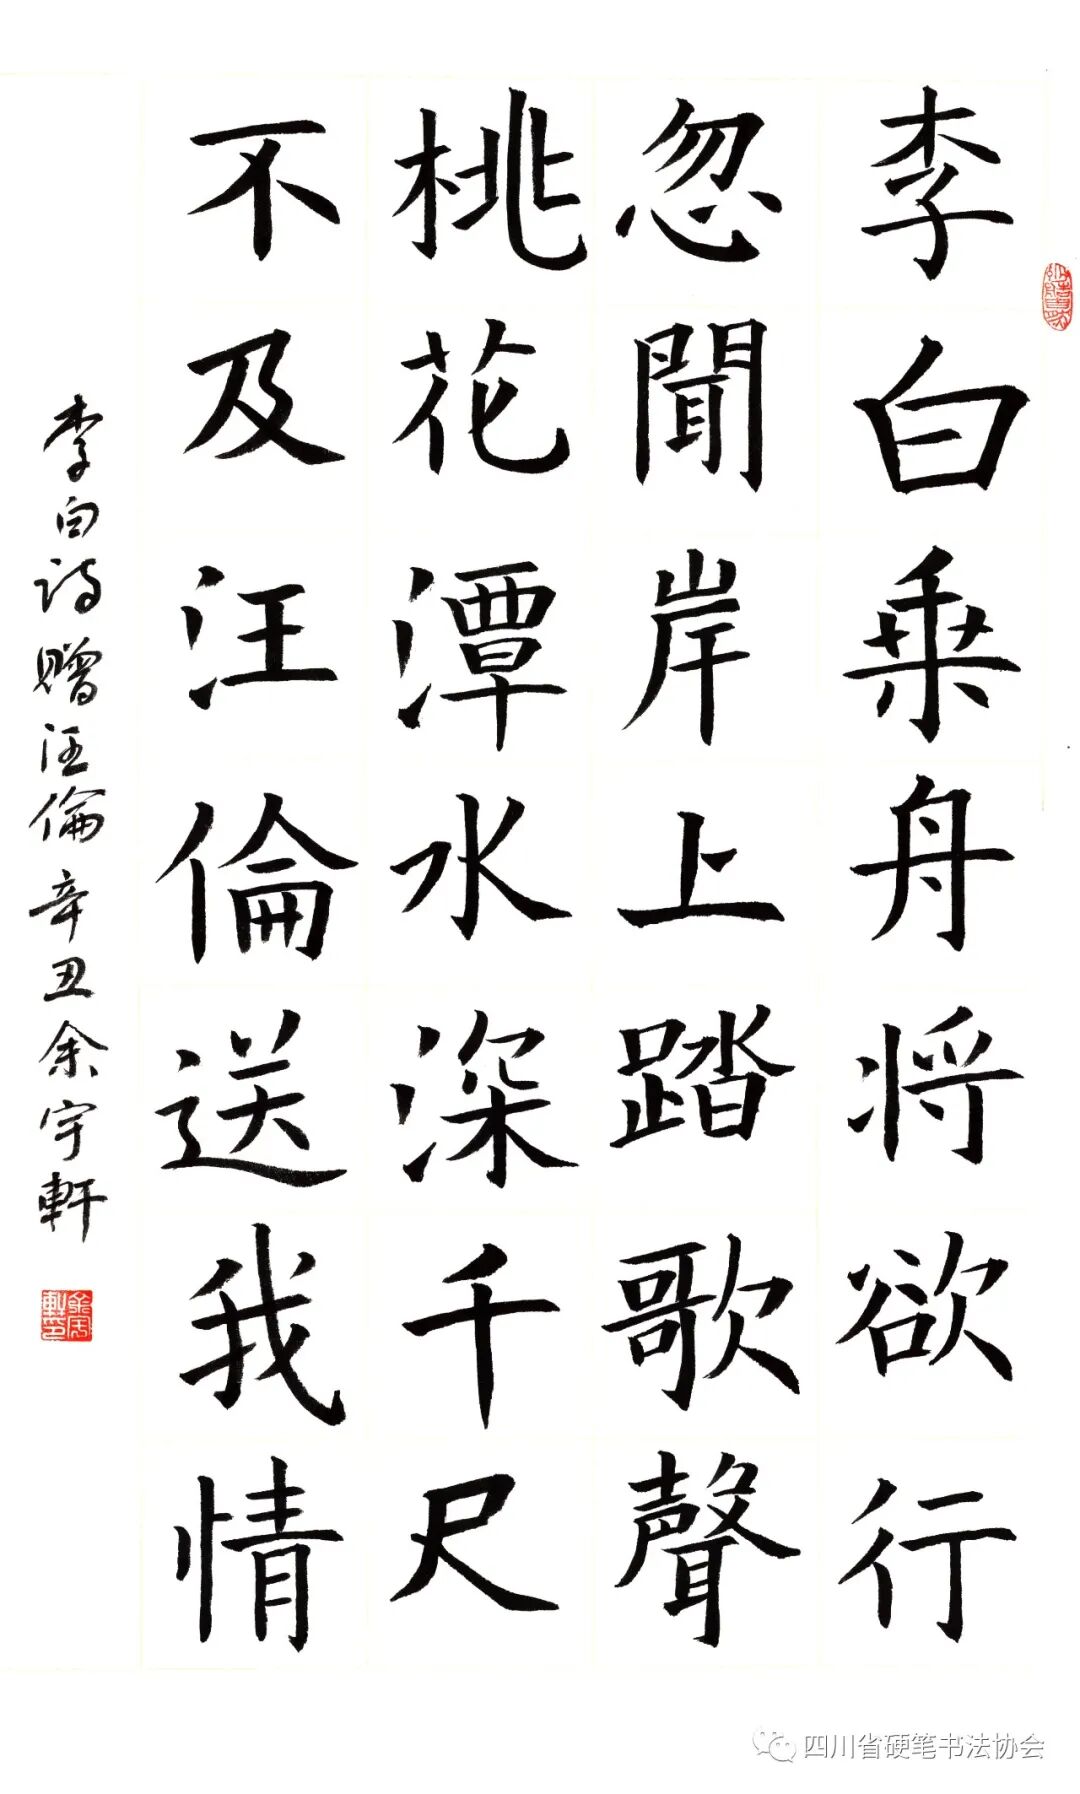 李白乗舟将欲行
忽聞岸上踏歌聲
桃花潭水深千尺
不及汪倫送我情
李白诗赠汪倫 辛丑余宇軒
四川省硬笔书法协会